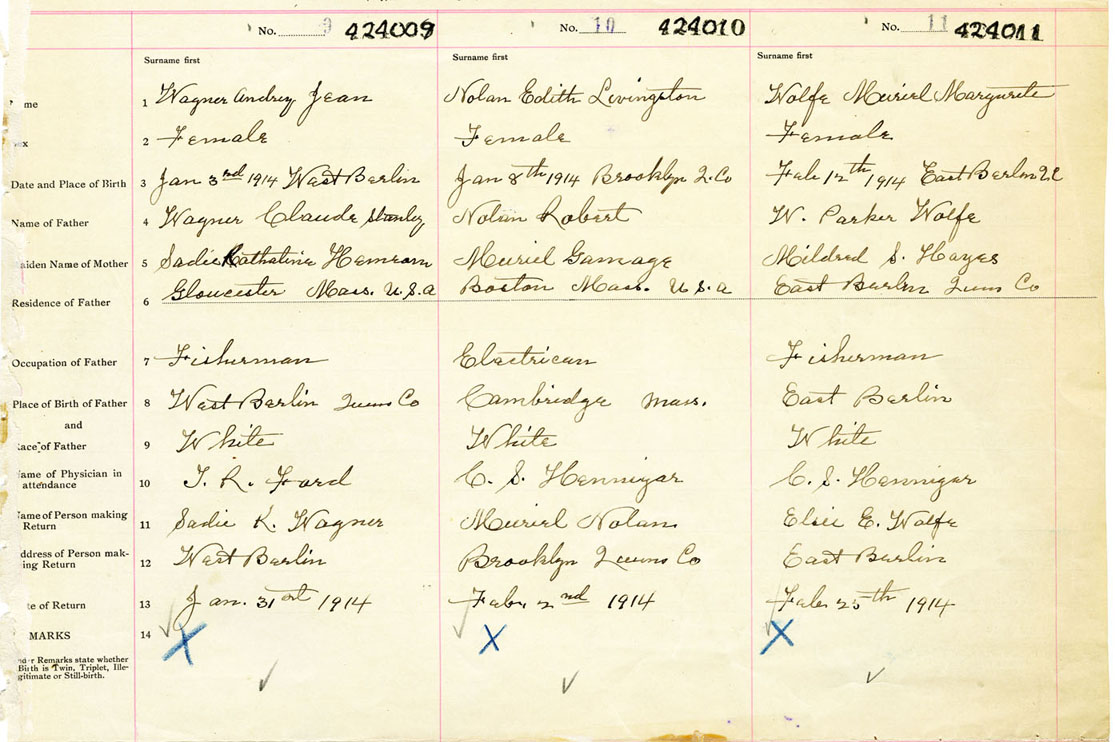 No. 9 424009 No. 10 424010 No. 11 424011
Surname first Surname first Surname first
me 1 Wagner Audrey Jean Nolan Edith Livingston Wolfe Muriel Marguerite
ex 2 Female Female Female
Date and Place of Birth 3 Jan 3rd 1914 West Berlin Jan 8th 1914 Brooklyn Q. Co Feb 12th 1914 East Berlin Q.C
Name of Father 4 Wagner Claude Stanley Nolan Robert W. Parker Wolfe
aiden Name of Mother 5 Sadie Kathatine Muriel Gamage Mildred S. Hayes
Residence of Father 6 Gloucester Mass. U.S.A Boston Mass. U.S.A East Berlin Queens Co
Occupation of Father 7 Fisherman Electrican Fisherman
Place of Birth of Father 8 West Berlin Queens Co Cambridge Mass. East Berlin
and
Race of Father 9 White White White
ame of Physician in
attendance 10 T. R. Ford C. S. Hennigar C. S. Hennigar
ame of Person making
Return 11 Sadie K. Wagner Muriel Nolan Elsie E. Wolfe
ddress of Person mak-
ing Return 12 West Berlin Brooklyn Queens Co East Berlin
te of Return 13 Jan. 31st 1914 Feb. 2nd 1914 Feb 25th 1914
MARKS 14 X X X
der Remarks state whether
Birth is Twin, Triplet, Ille-
gitimate or Still-birth.